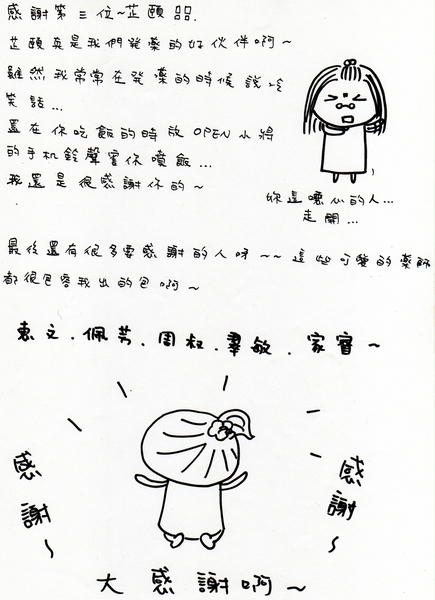 感謝第三位~芷頤 器.
芷頤真是我們發藥的好伙伴啊~
雖然我常常在發藥的時候說冷
笑話...
還在你吃飯的時放OPEN小將
的手机鈴聲害你噴飯...
我還是很感謝你的~
妳這噁心的人...
走開...
最後還有很多要感謝的人呀~~ 這些可愛的藥師
都很包容我出的包啊~
惠文.佩芳.周叔.羣敏.家睿~
感謝~
感謝~
大感謝啊~